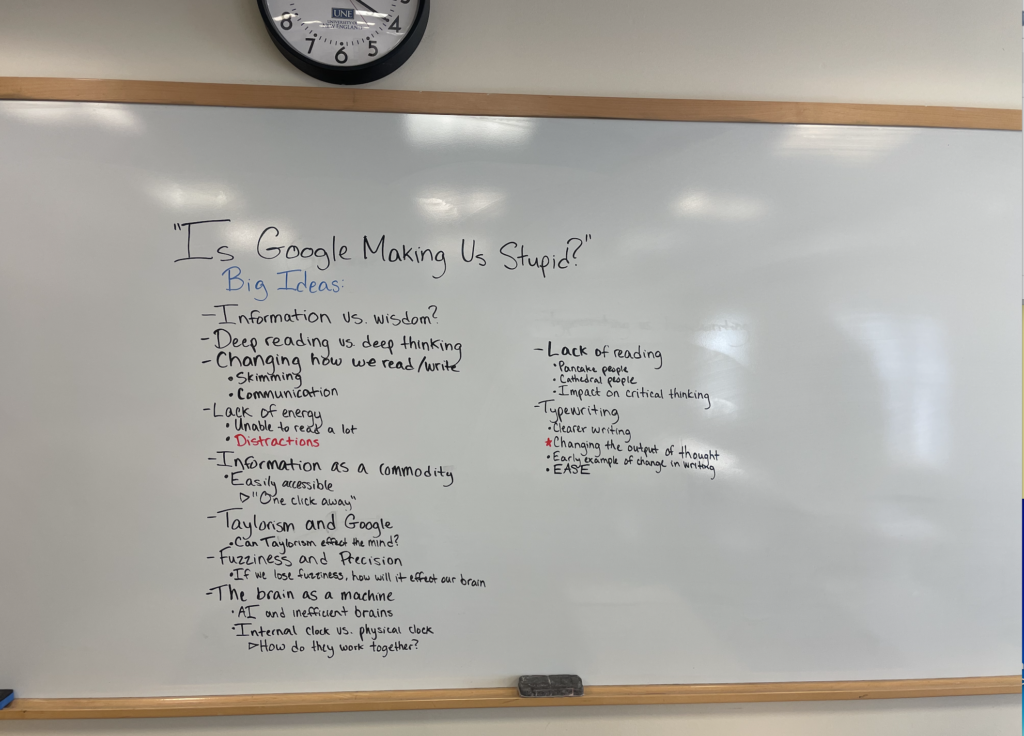 8
7
6
5
4
UNE
UNIVERSITY OF
NEW ENGLAND
"Is Google Making Us Stupid?"
Big Ideas:
- Information vs. wisdom?
- Deep reading vs. deep thinking
- Changing how we read/write
• Skimming
• Communication
- Lack of energy
• Unable to read a lot
• Distractions
- Information as a commodity
• Easily accessible
▷ "One click away"
- Taylorism and Google
• Can Taylorism effect the mind?
- Fuzziness and Precision
• If we lose fuzziness, how will it effect our brain
- The brain as a machine
• AI and inefficient brains
• Internal clock vs. physical clock
▷ How do they work together?
- Lack of reading
• Pancake people
• Cathedral people
• Impact on critical thinking
- Typewriting
• Clearer writing
★ Changing the output of thought
• Early example of change in writing
• EASE